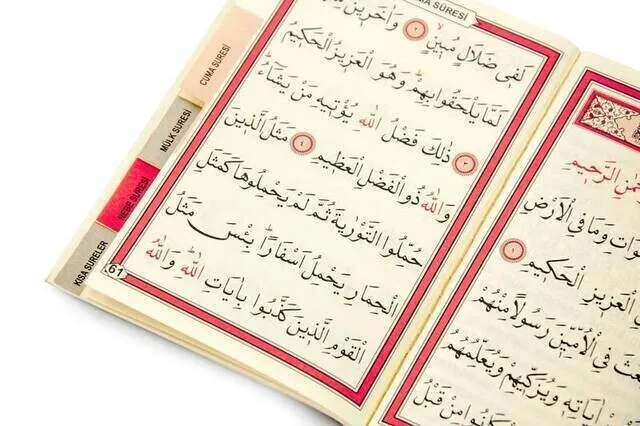 الرَّحِيمِ
وَمَا فِي الْاَرْضِ
الْعَزِيزِ الْحَكِيمِ ١
فِي الْاُمِّيّٖنَ رَسُولًا مِنْهُمْ
اٰيَاتِهٖ وَيُزَكِّيهِمْ وَيُعَلِّمُهُمُ
كَانُوا مِنْ قَبْلُ
SÛRESİ
لَفِي ضَلَالٍ مُبِينٍ ٢ وَاٰخَرِينَ
لَمَّا يَلْحَقُوا بِهِمْ وَهُوَ الْعَزِيزُ الْحَكِيمُ
٣ ذٰلِكَ فَضْلُ اللّٰهِ يُؤْتِيهِ مَنْ يَشَٓاءُ
وَاللّٰهُ ذُو الْفَضْلِ الْعَظِيمِ ٤ مَثَلُ الَّذِينَ
حُمِّلُوا التَّوْرٰيةَ ثُمَّ لَمْ يَحْمِلُوهَا كَمَثَلِ
الْحِمَارِ يَحْمِلُ اَسْفَارًا بِئْسَ مَثَلُ
الْقَوْمِ الَّذِينَ كَذَّبُوا بِاٰيَاتِ اللّٰهِ وَاللّٰهُ
61
CUMA SURESİ
MÜLK SURESİ
NEBE SURESİ
KISA SURELER